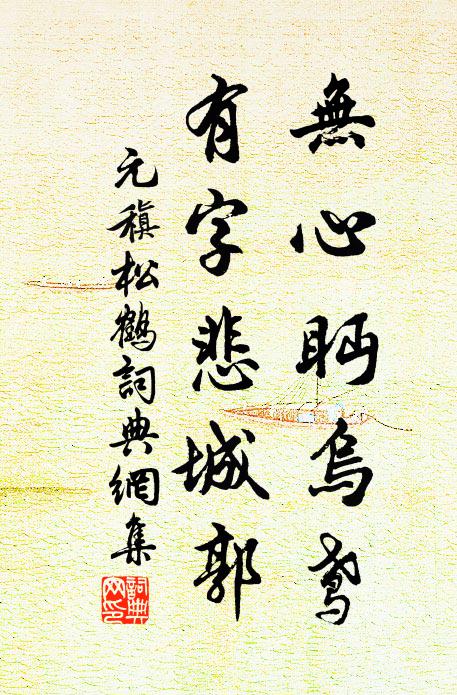 無心眄烏鳶
有字悲城郭
元稹松鶴詞典網集
詞典网印